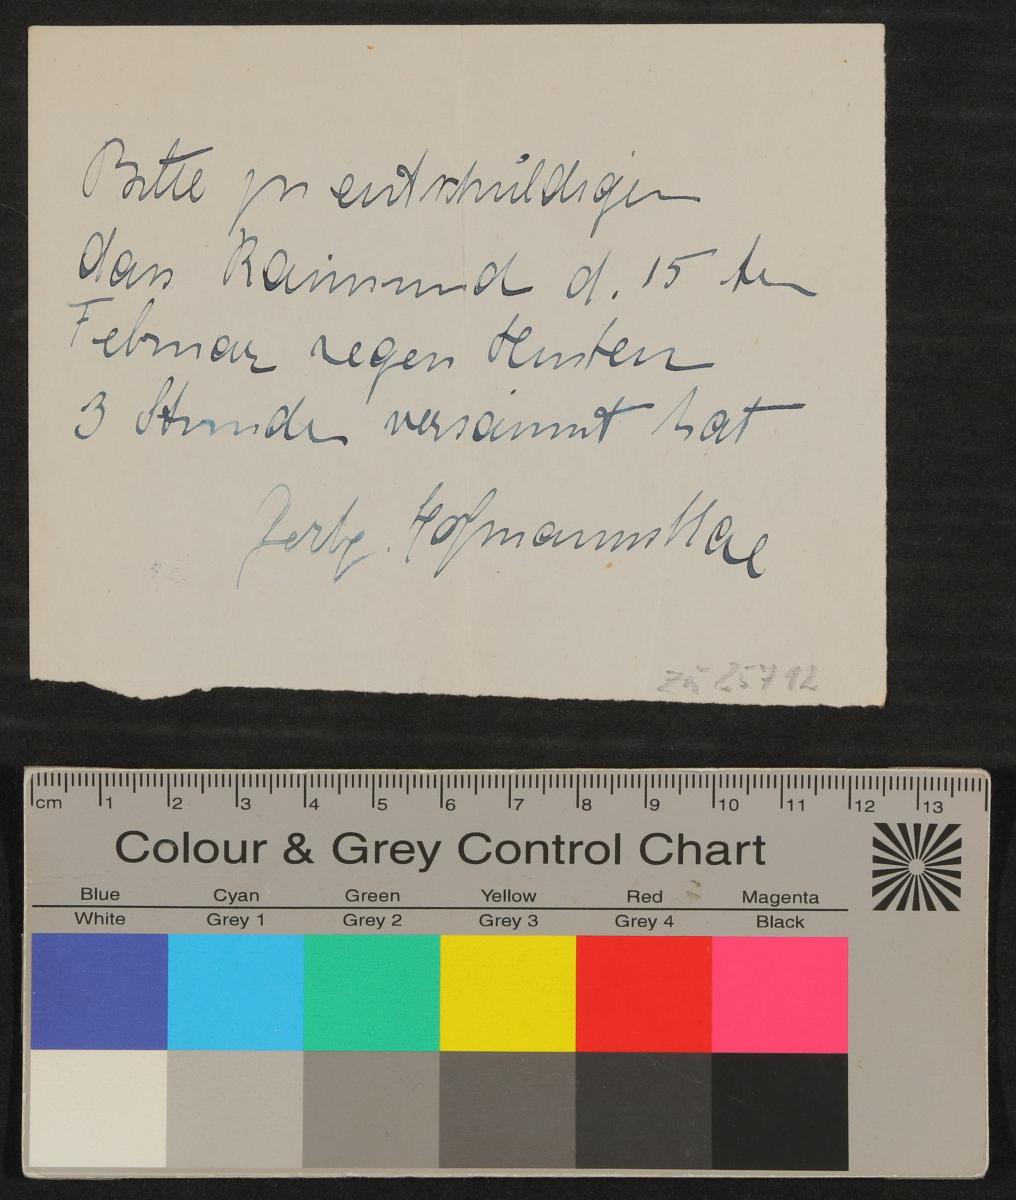 Bitte zu entschuldigen
dass Raimund d. 15 ten
Februar wegen Husten
3 Stunden versäumt hat
Hofmannsthal
ZN 25792
cm 1 2 3 4 5 6 7 8 9 10 11 12 13
Colour & Grey Control Chart
Blue Cyan Green Yellow Red Magenta
White Grey 1 Grey 2 Grey 3 Grey 4 Black